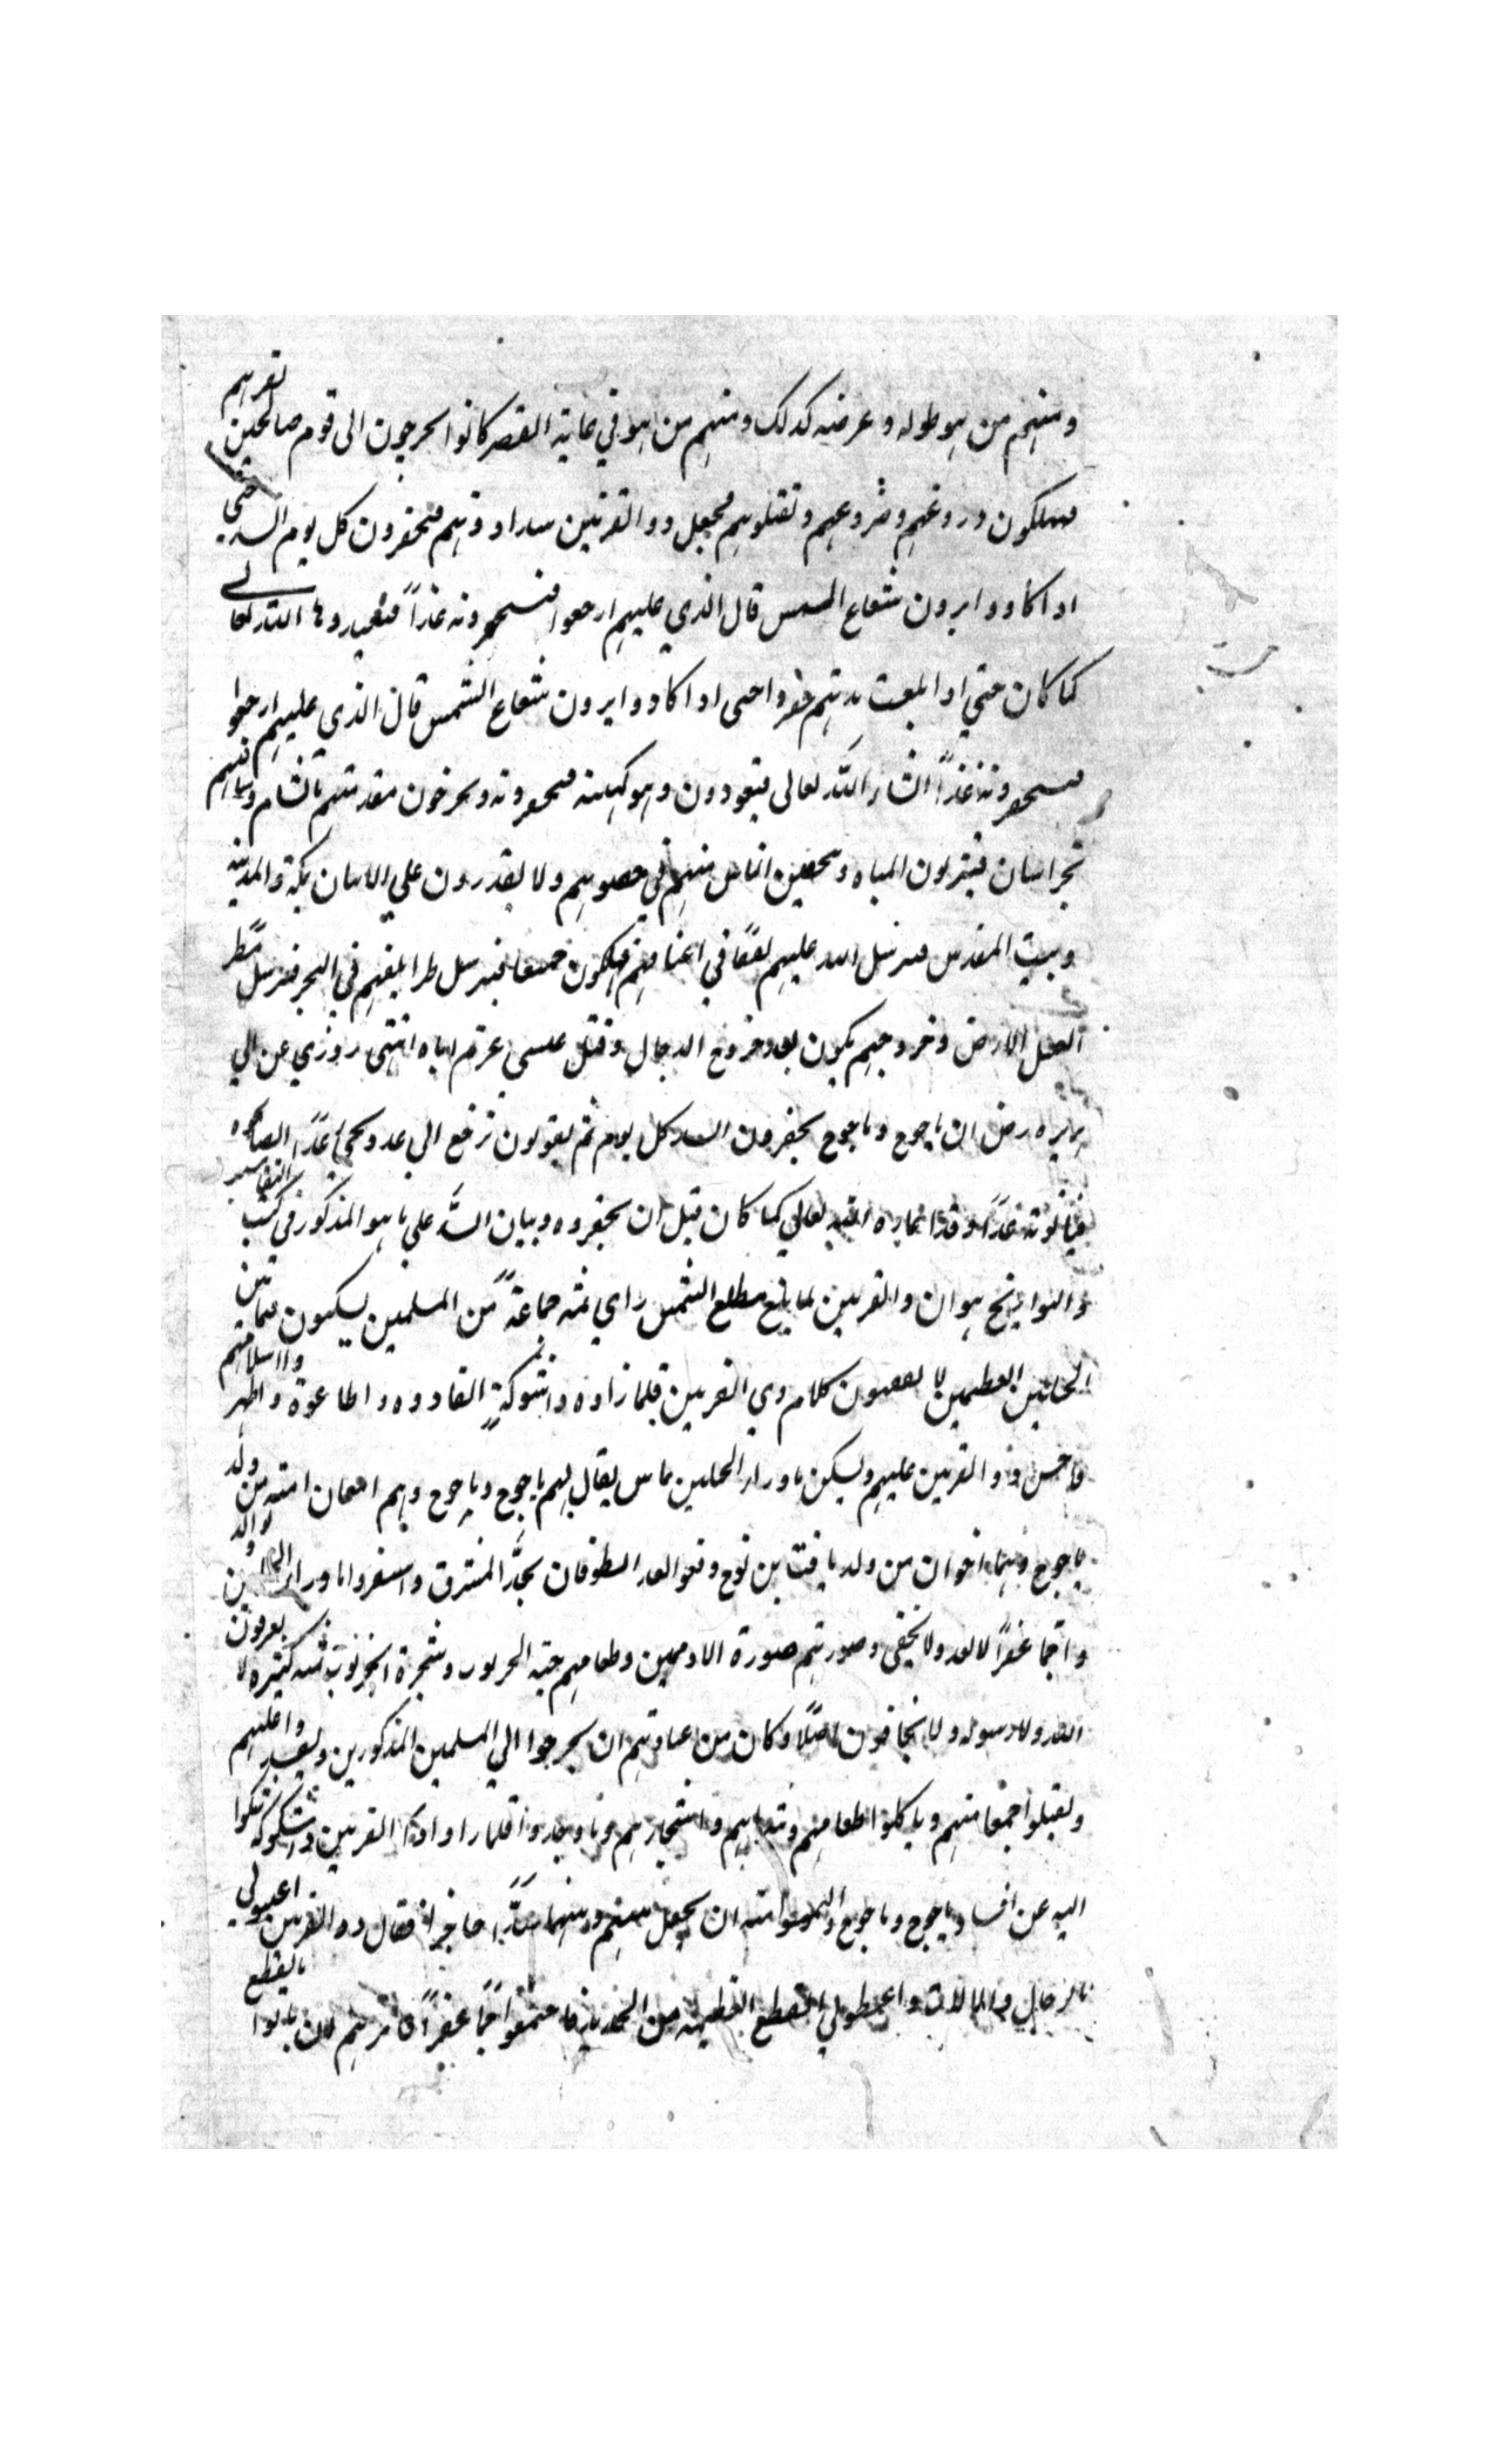 ومنهم من هو طوله وعرضه كذلك ومنهم من هو في غاية القصر كانوا يخرجون الى قوم صالحين تقربهم
فيهلكون زروعهم وضروعهم وتقتلوهم فجعل ذو القرنين سدا دونهم فيحفرون كل يوم السد حتى
اذا كادوا يرون شعاع الشمس قال الذي عليهم ارجعوا فستحفرونه غدا فيعيدوها الله تعالى
كما كان حتي اذا بلغت مدتهم حفروا حتى اذا كادوا يرون شعاع الشمس قال الذي عليهم ارجعوا
فستحفرونه غدًا انشاء الله تعالى فيعودون وهو كهيئته فيحفرونه ويخرجون مقدمتهم بالشام وساقتهم
بخراسان فيشربون المياه ويتحصن الناس منهم في حصونهم ولا يقدرون علي الاتيان بمكة والمدينة
وبيت المقدس فيرسل الله عليهم نغفًا في اعناقهم فيهلكون جميعا فيرسل طيرا فيلقيهم في البحر فيرسل مطر
الغسل الارض وخروجهم يكون بعد خروج الدجال وقتل عيسى اياه انتهى روي عن ابي
هريره رض ان ياجوج وماجوج يحفرون السد كل يوم ثم يقولون نرجع الي غد
غدًا وقد اعاده الله تعالي كما كان قبل ان يحفروه وبيان السد علي ما هو المذكور في كتب التفاسير
والتواريخ هو ان ذو القرنين لما بلغ مطلع الشمس راي ثمه جماعة من المسلمين يسكنون فيما بين
الجبلين العظيمين لا يفقهون كلام ذي القرنين فلما راوه ذا شوكة انقادوه واطاعوه واظهروا اسلامهم
فاحسن ذو القرنين عليهم ويسكن ما وراء الجبلين ناس يقال لهم ياجوج وماجوج وهم امتان امة من ولد
ماجوج وهما اخوان من ولد يافث بن نوح وقعوا بعد الطوفان بحد المشرق واستقروا ما وراء الجبلين
جما غفرًا لا تعد ولا تحصى وصورتهم صورة الادميين وطعامهم حبه الخرنوب وشجرة الخرنوب ثمه كثيرة لا يعرفون
الله ولا رسوله ولا يخافون اصلًا وكان من عادتهم ان يخرجوا الي المسلمين المذكورين
ويقتلوا جمعا منهم وياكلوا طعامهم واشجارهم فلما راوا ذا القرنين ذا شوكة شكوا
اليه عن افساد ياجوج وماجوج والتمسوا منه ان يجعل بينهم وبينهما سدًا حاجزا فقال ذو القرنين اعينوني
بالرجال والالات واعطوني القطع العظيمة من الحديد فاجتمعوا جمًا غفرًا فامرهم ان ياتوا بالقطع